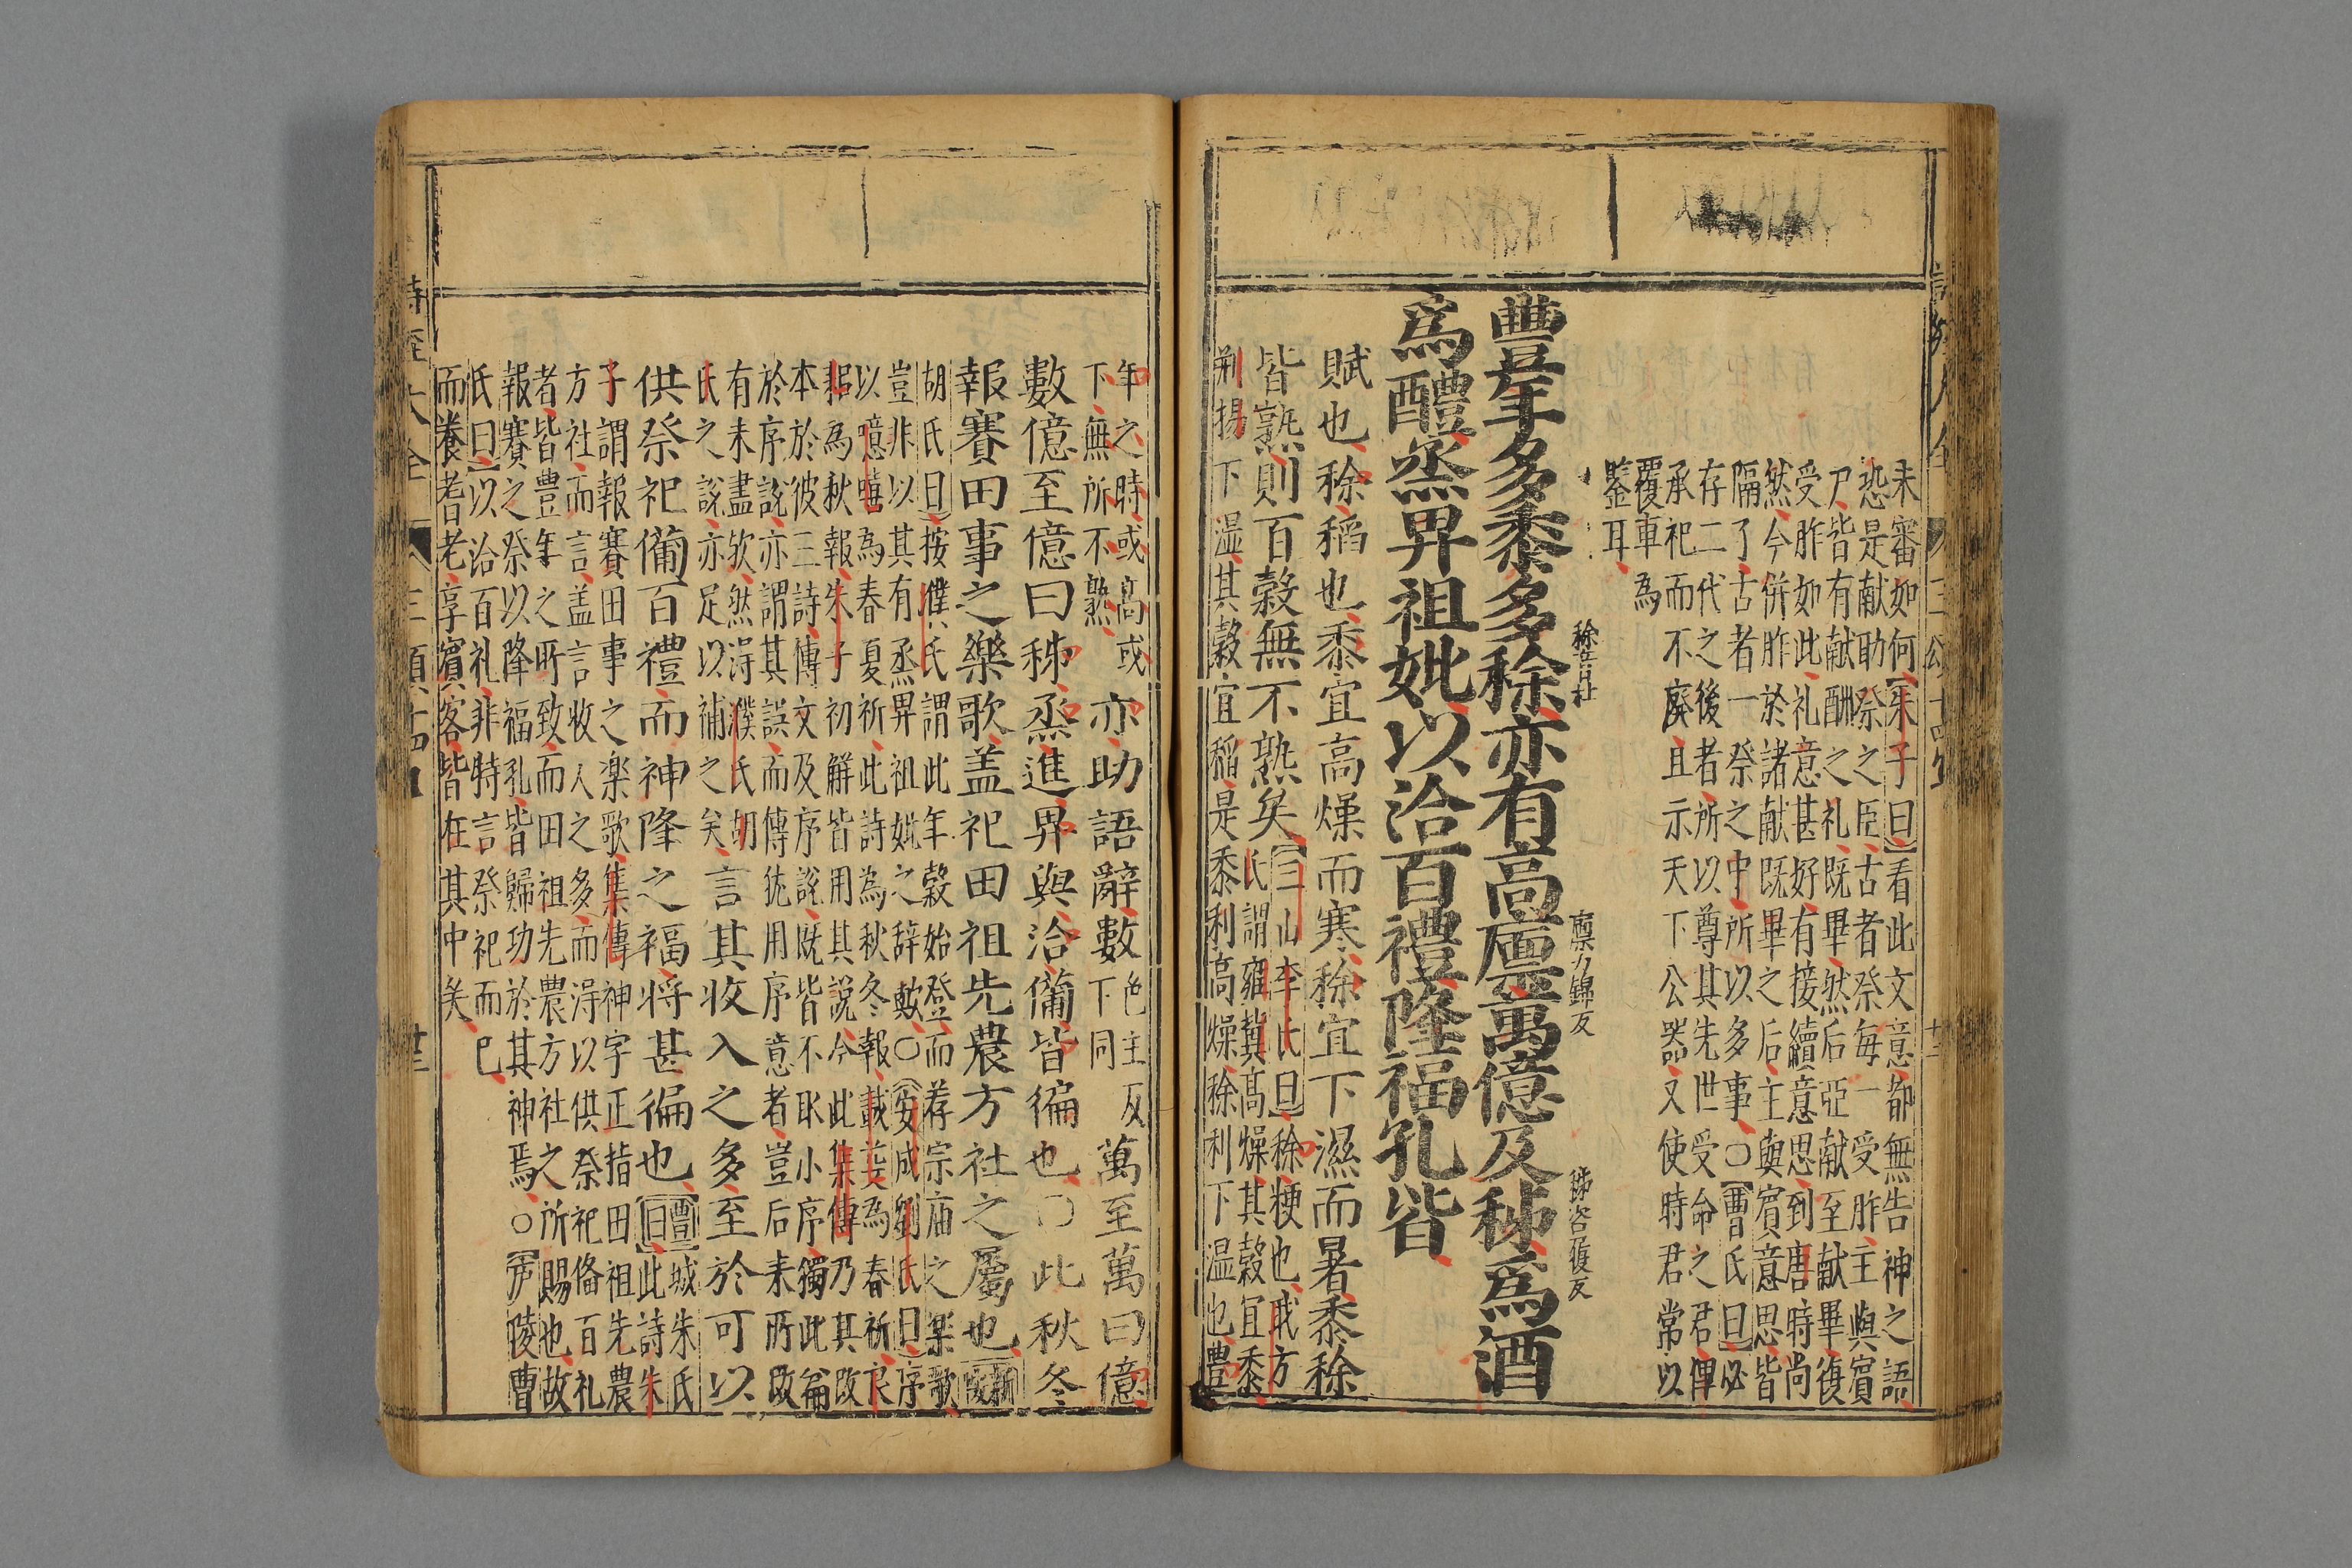 未審如何【朱子曰】看此文意都無告神之語
恐是献助祭之臣古者祭每一受胙主與賔
尸皆有献酬之礼既畢然后亞献至献畢復
受胙如此礼意甚好有接續意思到唐時尚
然今併胙於諸献既畢之后主與賔意思皆
隔了古者一祭之中所以多事○【曹氏曰】必
存二代之後者所以尊其先世受命之君俾
承祀而不廢且示天下公器又使時君常以
覆車為
鑒耳
稌音杜
廪力錦反
秭咨履反
豊年多黍多稌亦有高廪萬億及秭爲酒
爲醴烝畀祖妣以洽百禮降福孔皆
賦也稌稻也黍宜高燥而寒稌宜下濕而暑黍稌
皆熟則百穀無不熟矣
【三山李氏曰】稌粳也戝方
氏謂雍冀高燥其穀宜黍
荆揚下温其穀宜稲是黍利高燥稌利下温也豊
年之時或高或
下無所不熟
亦助語辭數
色主反
下同
萬至萬曰億
數億至億曰秭烝進畀與洽備皆徧也○此秋冬
報賽田事之樂歌盖祀田祖先農方社之屬也【新安
胡氏曰】按濮氏謂此年穀始登而荐宗庙之楽歌
豈非以其有烝畀祖妣之辞歟○【安成劉氏曰】序
以噫嘻為春夏祈此詩為秋冬報載芟為春祈良
耜為秋報朱子初解皆用其說今此集傳乃其改
本於彼三詩傳文及序說既皆不取小序獨此篇
於序說亦謂其誤而傳犹用序意者豈后来所改
有未盡欤然淂濮氏胡
氏之說亦足以補之矣
言其收入之多至於可以
供祭祀備百禮而神降之福将甚徧也
【豊城朱氏
曰】此詩朱
子謂報賽田事之楽歌集傳神字正指田祖先農
方社而言盖言收入之多而淂以供祭祀俻百礼
者皆豊年之所致而田祖先農方社之所賜也故
報賽之祭以降福孔皆歸功於其神焉○【庐陵曹
氏曰】以洽百礼非特言祭祀而已
而養耆老享賔客皆在其中矣
詩經大全 三頌十四 廿三